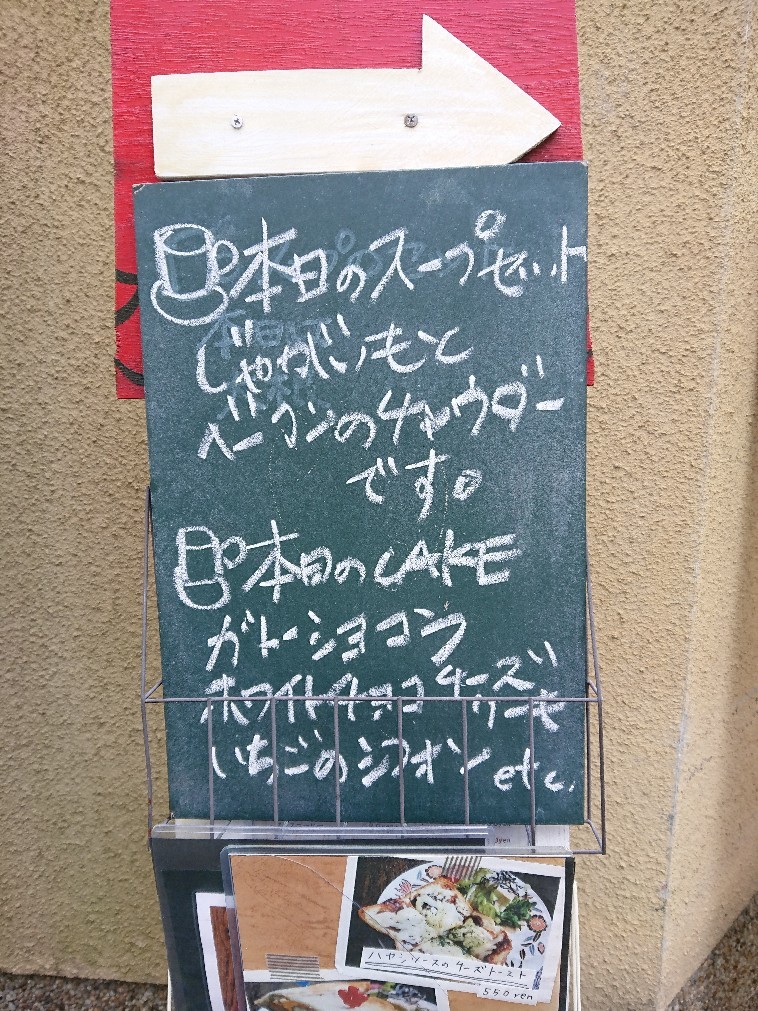 本日のスープセット
じゃがいもと
ベーコンのチャウダー
です。
本日のCAKE
ガトーショコラ
ホワイトチョコチーズケーキ
いちごのシフォン etc.
ハヤシソースのチーズトースト
550yen